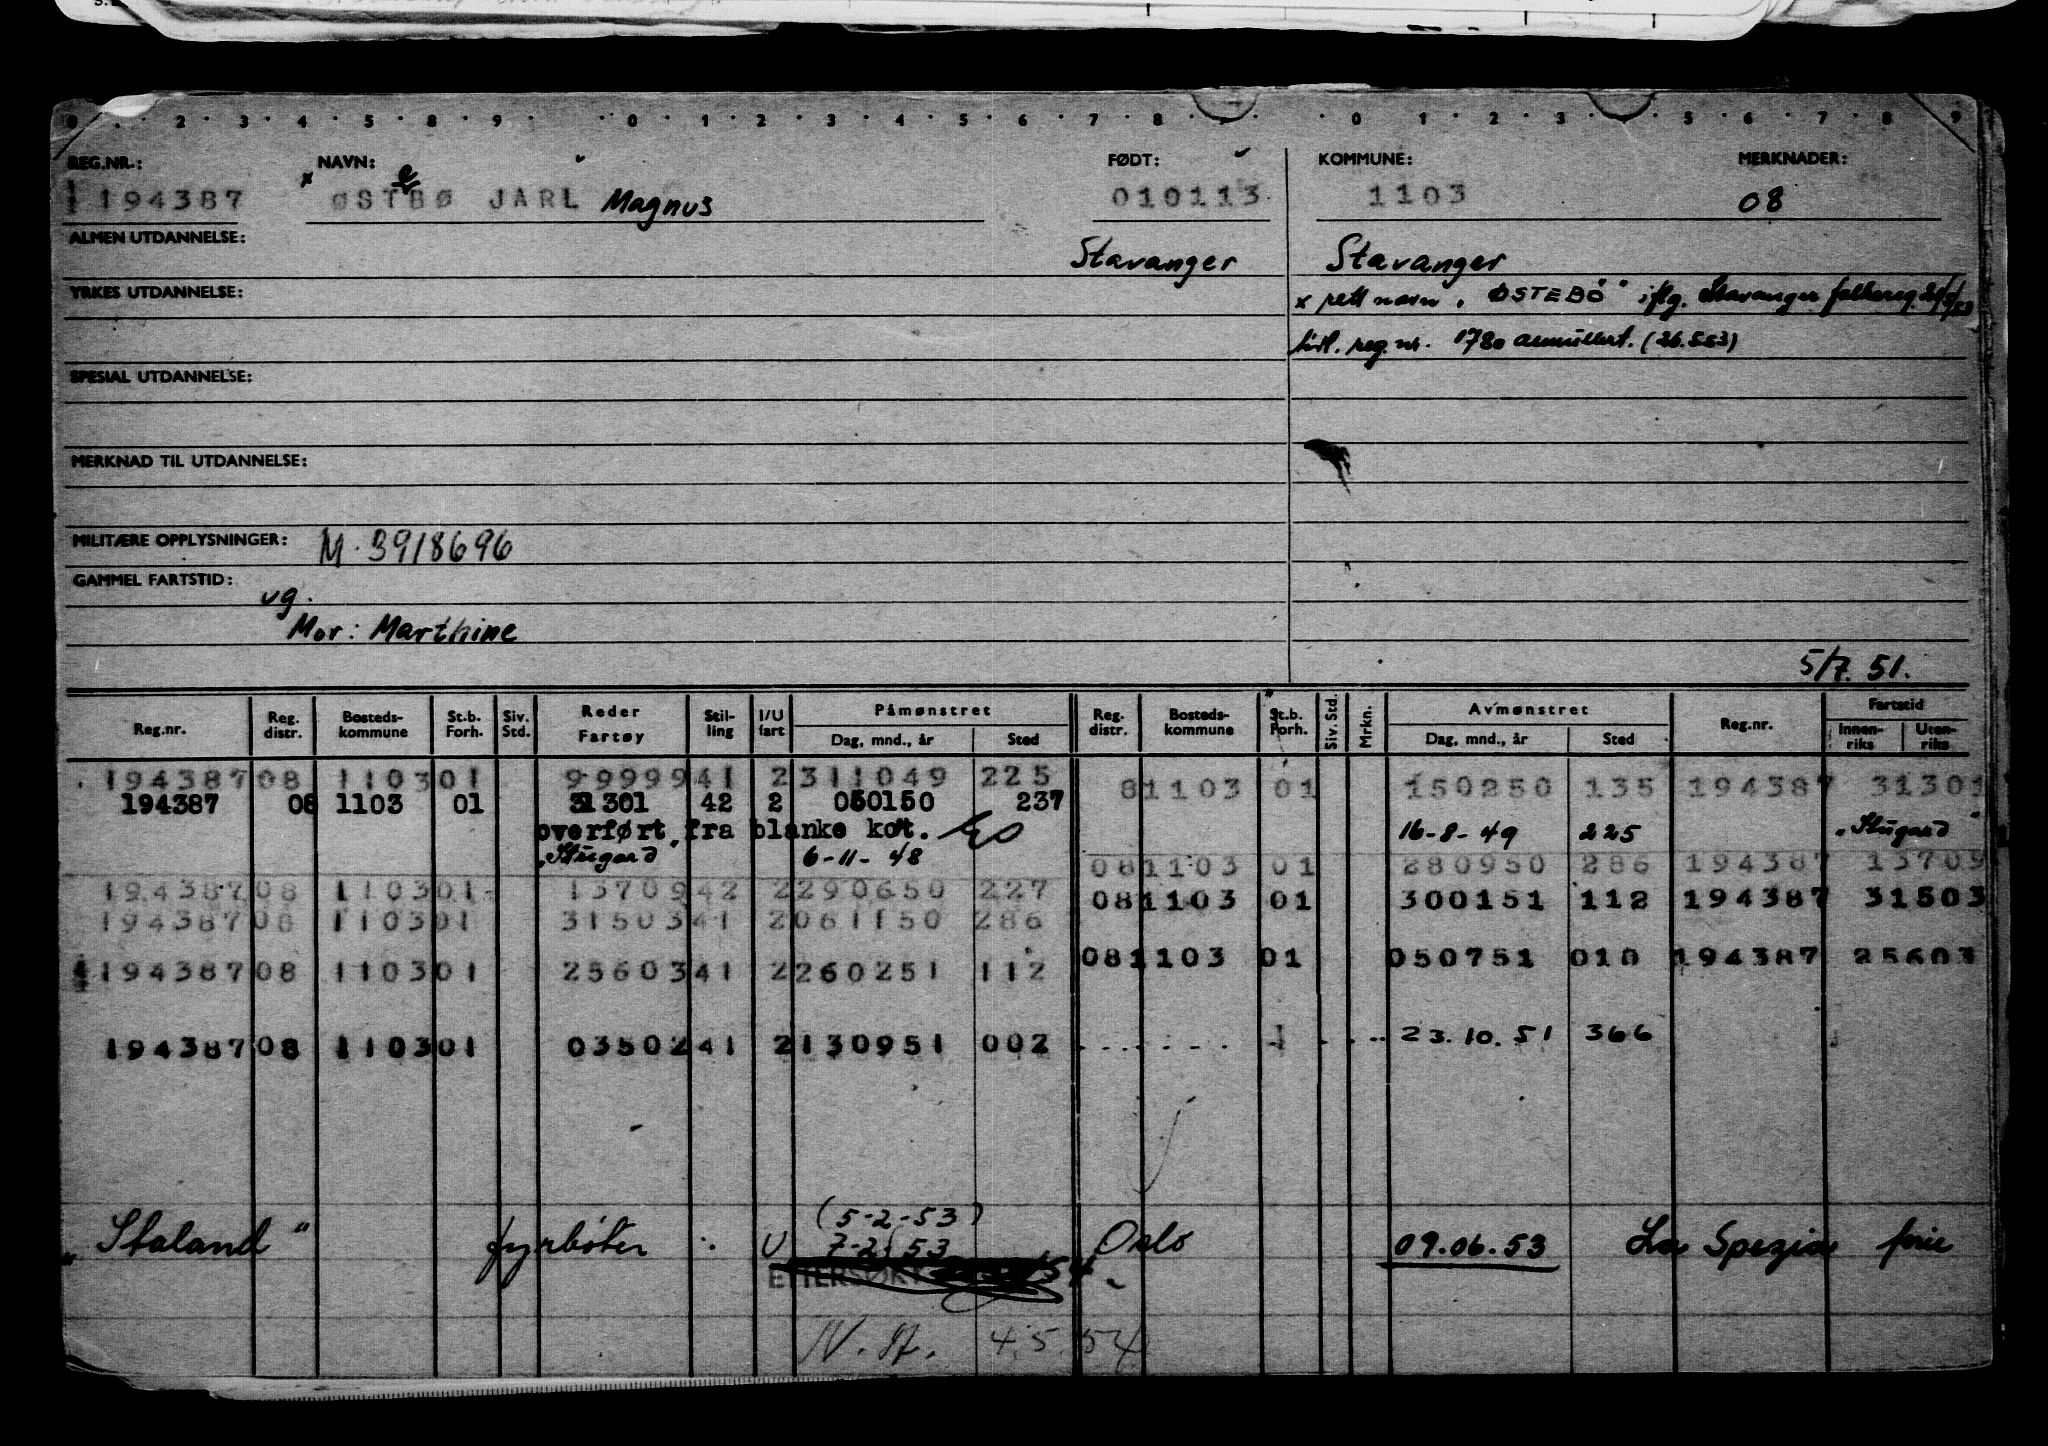 0 · · 2 · 3 · 4 · 5 · 8 · 9 · · 0 · 1 · 2 · 3 · 4 · 5 · 6 · 7 · 8 · · · · 0 · 1 · 2 · 3 · · 5 · 6 · 7 · 8 · 9
REG.NR.: NAVN: FØDT: KOMMUNE: MERKNADER:
194387 x ØSTBØ JARL Magnus 010113 1103 08
e
ALMEN UTDANNELSE:
Stavanger Stavanger
YRKES UTDANNELSE:
x rett navn "ØSTEBÖ" iflg. Stavanger folkereg.
tidl. reg.nr. 1780 annullert. (26.5.53)
SPESIAL UTDANNELSE:
MERKNAD TIL UTDANNELSE:
MILITÆRE OPPLYSNINGER: M. 3918696
GAMMEL FARTSTID:
vg.
Mor: Marthine
5/7. 51.
Reg.nr. Reg. distr. Bosteds-kommune St.b. Forh. Siv. Std. Reder Fartøy Stil-ling I/U fart Påmønstret Dag, mnd., år Sted Reg. distr. Bosteds-kommune St.b. Forh. Siv. Std. Mrkn. Avmønstret Dag, mnd., år Sted Reg.nr. Fartstid Innen-riks Uten-riks
194387 08 1103 01 99999 41 2 311049 225 81103 01 150250 135 194387 31301
194387 08 1103 01 31301 42 2 050150 237
overført fra blanke kot. 16-8-49 225 "Stugard"
"Stugard" 6-11-48 08 1103 01 280950 286 194387 13709
194387 08 1103 01 13709 42 2 290650 227 08 1103 01 300151 112 194387 31503
194387 08 1103 01 31503 41 2 061150 286
194387 08 1103 01 25603 41 2 260251 112 08 1103 01 050751 010 194387 25603
194387 08 1103 01 03502 41 2 130951 002 23.10.51 366
(5-2-53)
"Staland" fyrbøter U 7-2-53 Oslo 09.06.53 La Spezia ferie
ETTERSØKT
N. A. 4.5.54